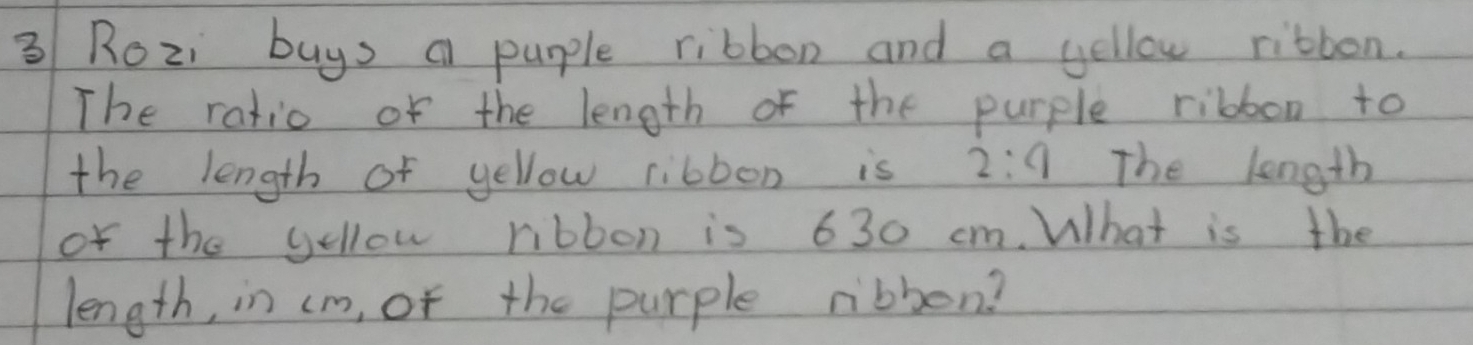 3 Rozi buys a purple ribbon and a yellow ribbon.
The ratio of the length of the purple ribbon to
the length of yellow ribbon is 2:9 The length
of the yellow ribbon is 630 cm. What is the
length, in cm, of the purple ribbon?